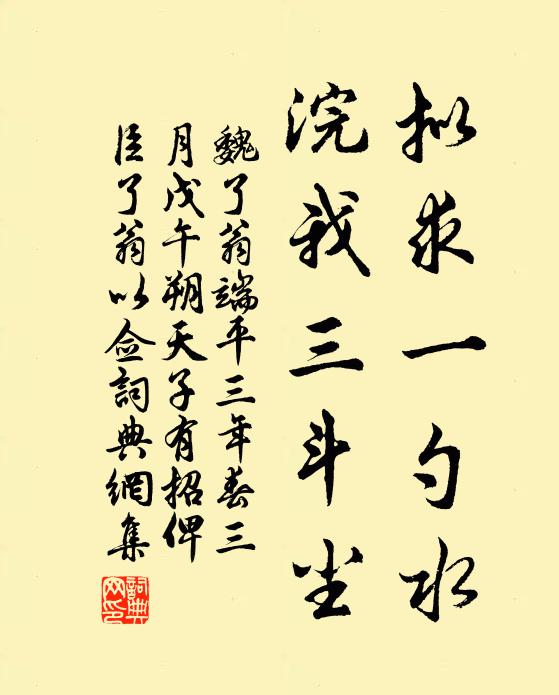 拟求一勺水
浣我三斗尘
魏了翁端平三年春三
月戊午朔天子有招俾
臣了翁以佥詞典網集
詞典網印